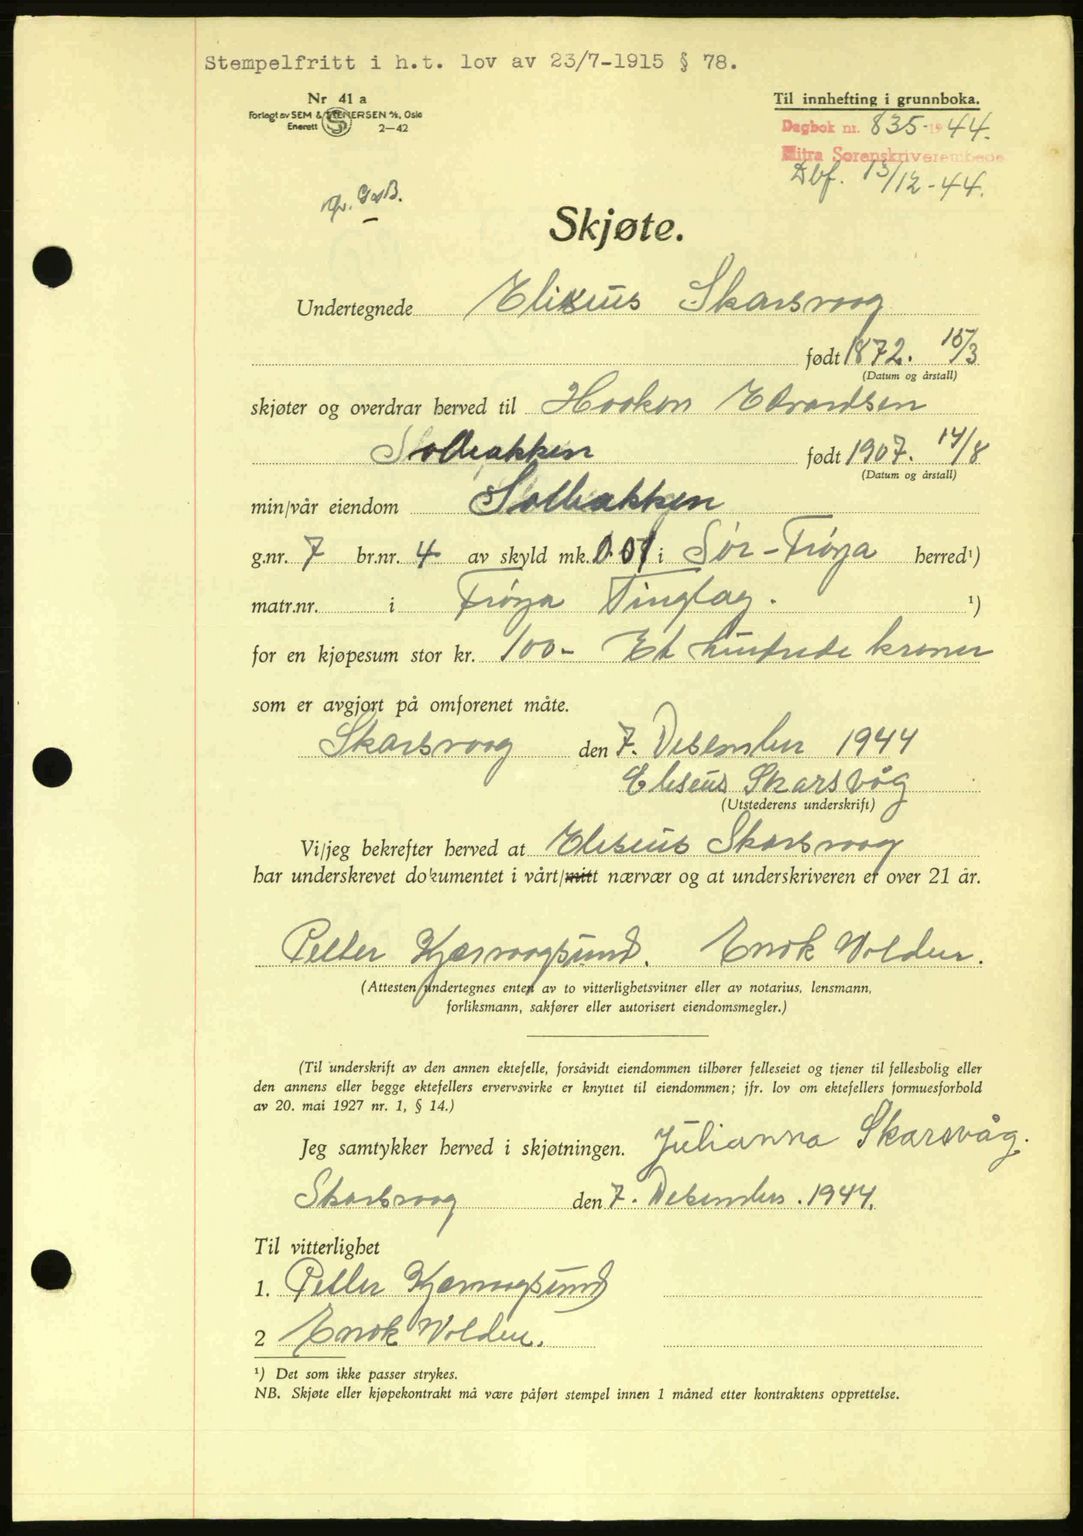 Stempelfritt i h.t. lov av 23/7-1915 § 78.
Nr 41 a
Forlagt av SEM & STENERSEN A/S, Oslo
Enerett 2-42
Til innhefting i grunnboka.
Dagbok nr. 835-1944.
Hitra Sorenskriverembede
Dbf. 13/12-44.
Skjøte.
Undertegnede Eliseus Skarsvaag
født 1872. 15/3
(Datum og årstall)
skjøter og overdrar herved til Haakon Edvardsen
Solbakken født 1907. 14/8
(Datum og årstall)
min/vår eiendom Solbakken
g.nr. 7 br.nr. 4 av skyld mk. 0.01 i Sør-Frøya herred¹)
matr.nr. i Frøya Tinglag. ¹)
for en kjøpesum stor kr. 100- Et hundrede kroner
som er avgjort på omforenet måte.
Skarsvaag den 7. Desember 1944
Eliseus Skarsvåg
(Utstederens underskrift)
Vi/jeg bekrefter herved at Eliseus Skarsvaag
har underskrevet dokumentet i vårt/mitt nærvær og at underskriveren er over 21 år.
Petter Kjærvaagsund. Enok Volden.
(Attesten undertegnes enten av to vitterlighetsvitner eller av notarius, lensmann,
forliksmann, sakfører eller autorisert eiendomsmegler.)
(Til underskrift av den annen ektefelle, forsåvidt eiendommen tilhører felleseiet og tjener til fellesbolig eller
den annens eller begge ektefellers ervervsvirke er knyttet til eiendommen; jfr. lov om ektefellers formuesforhold
av 20. mai 1927 nr. 1, § 14.)
Jeg samtykker herved i skjøtningen. Julianna Skarsvåg.
Skarsvaag den 7. Desember. 1944.
Til vitterlighet
1. Petter Kjærvaagsund
2 Enok Volden.
¹) Det som ikke passer strykes.
NB. Skjøte eller kjøpekontrakt må være påført stempel innen 1 måned etter kontraktens opprettelse.